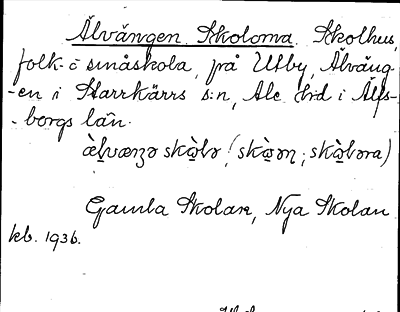 Älvängen Skolorna. Skolhus,
folk- o småskola, på Utby, Älväng-
-en i Starrkärrs s:n, Ale hrd i Älfs-
-borgs län.
Gamla Skolan, Nya Skolan
kb. 1936.